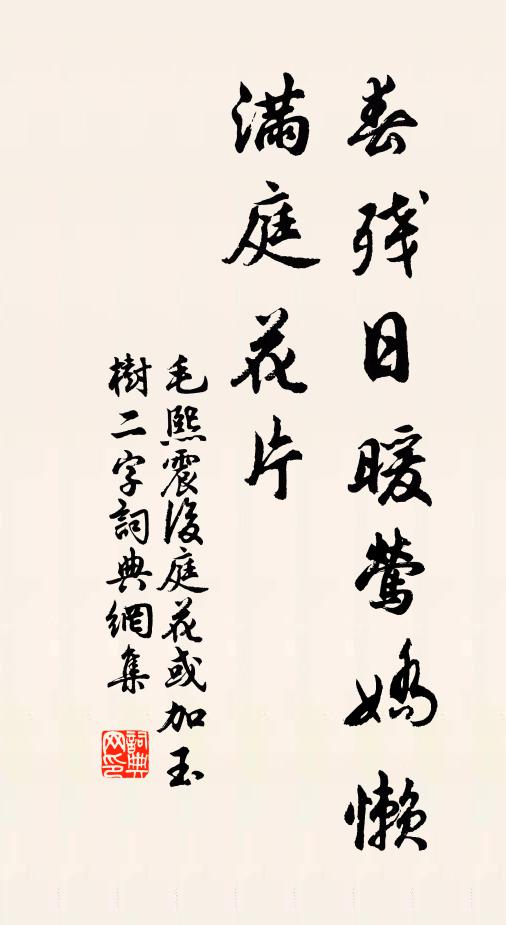 春残日暖鶯嬌懶
滿庭花片
毛熙震後庭花或加玉
樹二字詞典網集
詞典网印